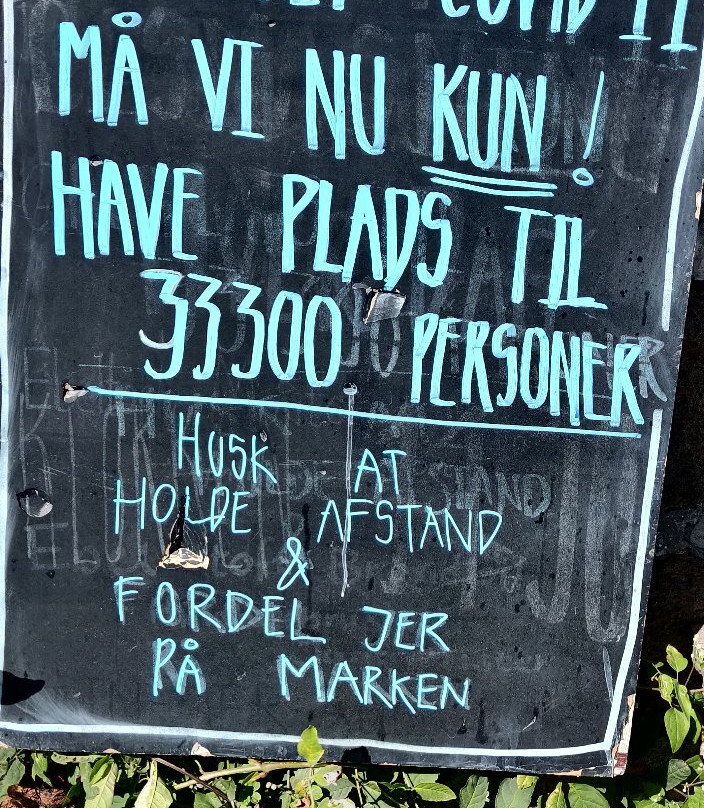 COVID 19
MÅ VI NU KUN !
HAVE PLADS TIL
33300 PERSONER
HUSK AT
HOLDE AFSTAND
&
FORDEL JER
PÅ MARKEN